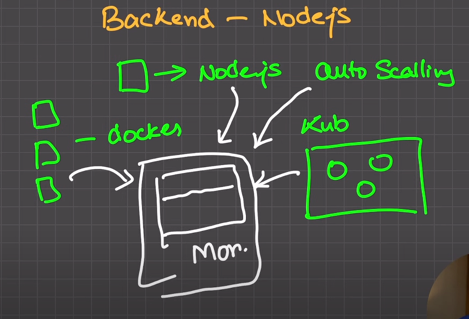 Backend - Nodejs
→ Nodejs
Auto Scalling
- docker
Kub
Mon.